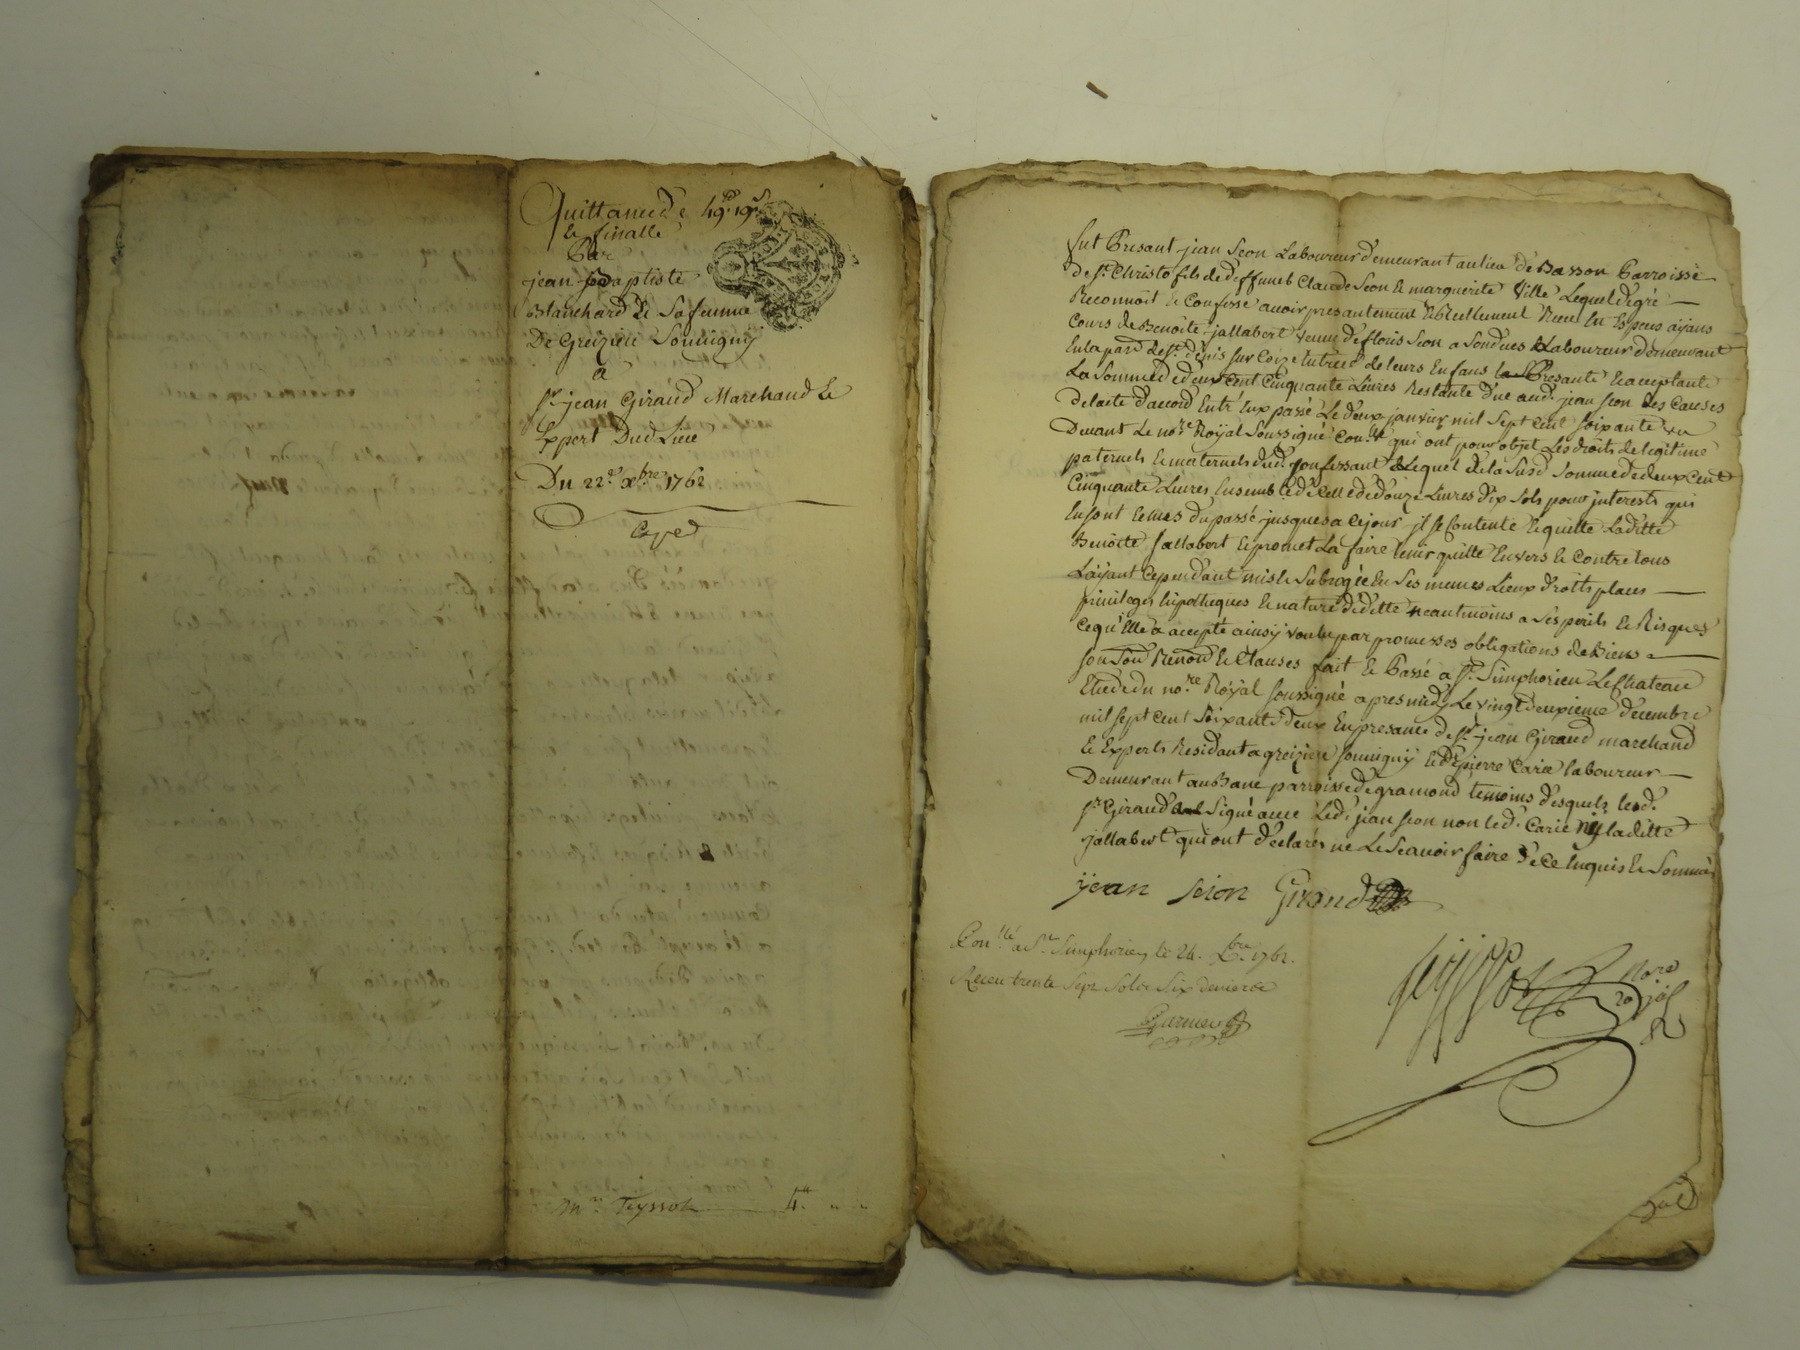 Quittance de 49# 19s
et finalle
Par
jean Baptiste
Blanchard et Sa femme
De Greizieu Souvigny
a
Sr jean Giraud Marchand Et
Expert Dud Lieu
Du 22e xbre 1762
Expéd
Mre Teyssot 4# " "
fut Presant jean Seon Laboureur demeurant au lieu de Basson Parroisse
de St Christo fils de deffunts Claude Seon et marguerite Ville Lequel de gré
Reconnoit et Confesse avoir presantement et Reellement Receu En Especes ayans
Cours de Benoite jallabert veuve de floris Seon a Son deces Laboureur demeurant
En la par de St Denis sur Coize tutrice de leurs Enfans Presante et acceptante
La Somme de deux Cent Cinquante Livres Restante due aud. jean Seon des Causes
De lacte d'accord Entre Eux passé Le deux janvier mil Sept Cent Soixante un
Devant Le nore Royal Soussigné Conllé qui ont pour objet Les droits de legitime
paternels et maternels dud. Confessant de Laquel de la Susd Somme de deux Cent
Cinquante Livres Ensemble de Celle de douze Livres dix Sols pour interests qui
En sont Echus du passé jusques a Ce jour il se Contente et quitte Laditte
Benoite Jallabert et promet La faire tenir quitte Envers et Contre tous
Layant Cependant mis et Subrogée En Ses memes Lieux droits places
privileges hipotheques et nature de dette neantmoins a Ses perils et Risques
Ce qu'Elle a accepté ainsy voulu par promesses obligations de Biens
Renond et Clauses fait et Passé a St Simphorien Le Chateau
Etude du nore Royal Soussigné apres midy Le vingt deuxieme décembre
mil sept cent Soixante deux En presance de Sr jean Giraud marchand
et Experts Residant a greizieu souvigny et de pierre Carie laboureur
Demeurant au Bane parroisse de gramond temoins desquels led.
Sr Giraud a Signé avec Led. jean seon non led. Carie ny laditte
jallabert qui ont déclarés ne Le Scavoir faire de Ce Enquis et Sommés
jean Seion Giraud
Conllé a St Simphorien le 24. Xbre 1762.
Receu trente Sept Sols Six deniers
Garnier
Teyssot Nore
Roial